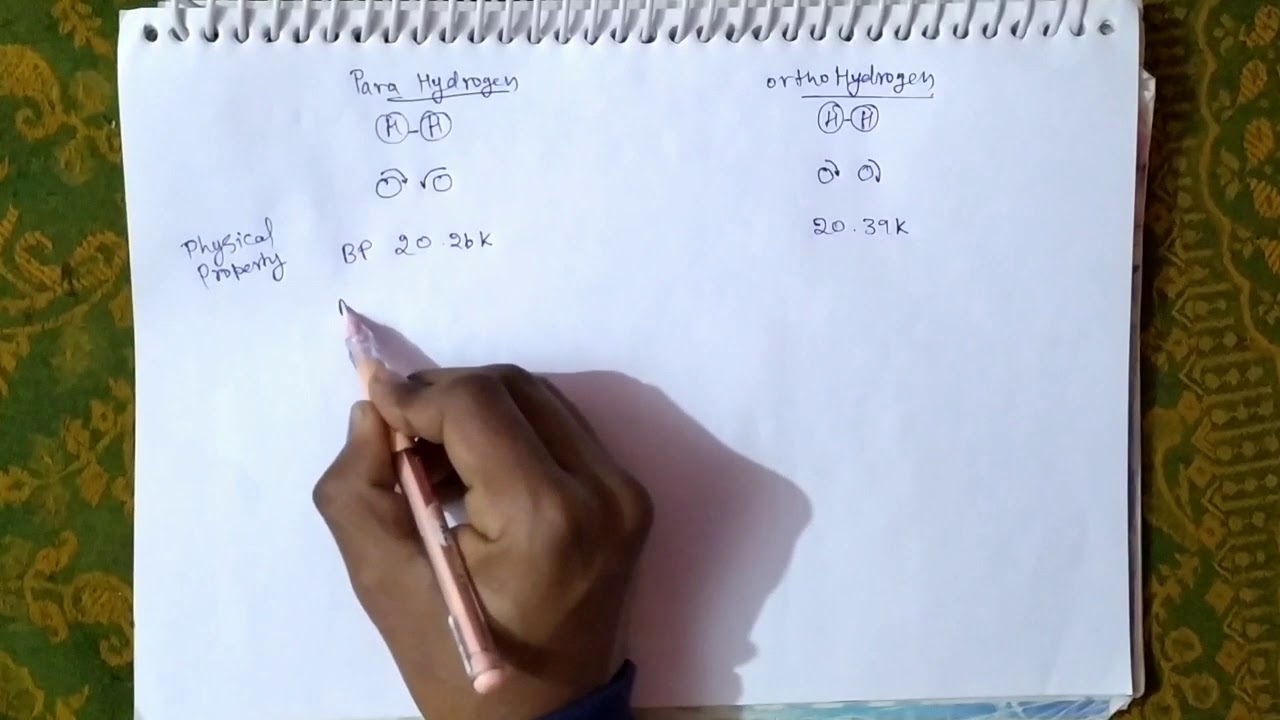 Para Hydrogen
orthoHydrogen
H-H
H-H
Physical
Property
BP 20.26K
20.39K